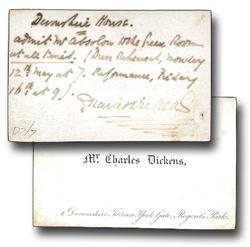 Devonshire House.
Admit Mr Absolon to the Green Room
at all times. (Dress Rehearsal, Monday
12th May at 7. Performance, Friday
16th at 9).
Charles Dickens
Mr. Charles Dickens,
1, Devonshire Terrace, York Gate, Regents Park.